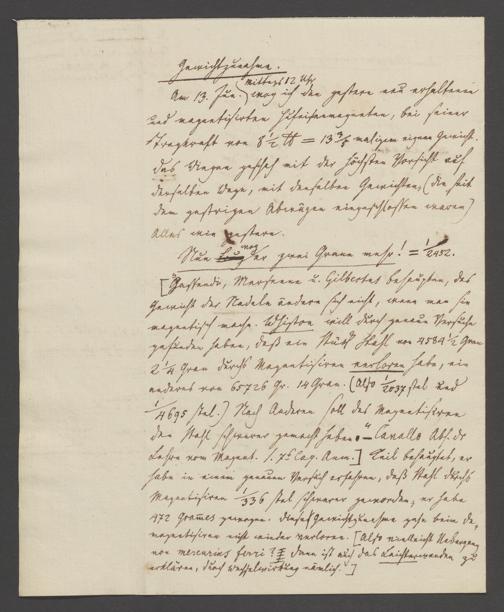 Gewichtzunahme.
Am 13. Jun. (mittags 12 Uhr) wog ich den gestern neu erhaltenen
und magnetisirten Hufeisenmagneten, bei seiner
Tragkraft von 8 1/2 ℔ = 13 3/5 maligem eignen Gewicht.
Das Wiegen geschah mit der höchsten Vorsicht auf
derselben Wage, mit denselben Gewichten, (die seit
dem gestrigen Abwägen eingeschlossen waren)
Alles wie gestern.
Nun wog er zwei Grane mehr! = 1/2452.
[„Gassendi, Mersenne u. Gilbertus behaupten, das
Gewicht der Nadeln ändere sich nicht, wenn man sie
magnetisch mache. Whiston will durch genaue Versuche
gefunden haben, daß ein Stück Stahl von 4584 1/2 Gran
2 1/4 Gran durchs Magnetisiren verloren habe, ein
anderes von 65726 Gr. 14 Gran. (Also 1/2037 stel und
1/4695 stel.) Nach Anderen soll das Magnetisiren
den Stahl schwerer gemacht haben." – Cavallo Abh. der
Lehre vom Magnet. Anm.] Keil behauptet, er
habe in einem genauen Versuch erfahren, daß Stahl durchs
Magnetisiren 1/336 stel schwerer geworden, er habe
472 Grammes gewogen. Diese Gewichtzunahme gehe beim De-
magnetisiren nicht wieder verloren. [Also vielleicht Uebergang
von mercurius ferri? Dann ist auch das Leichterwerden zu
erklären, durch Wechselwirkung nämlich.]